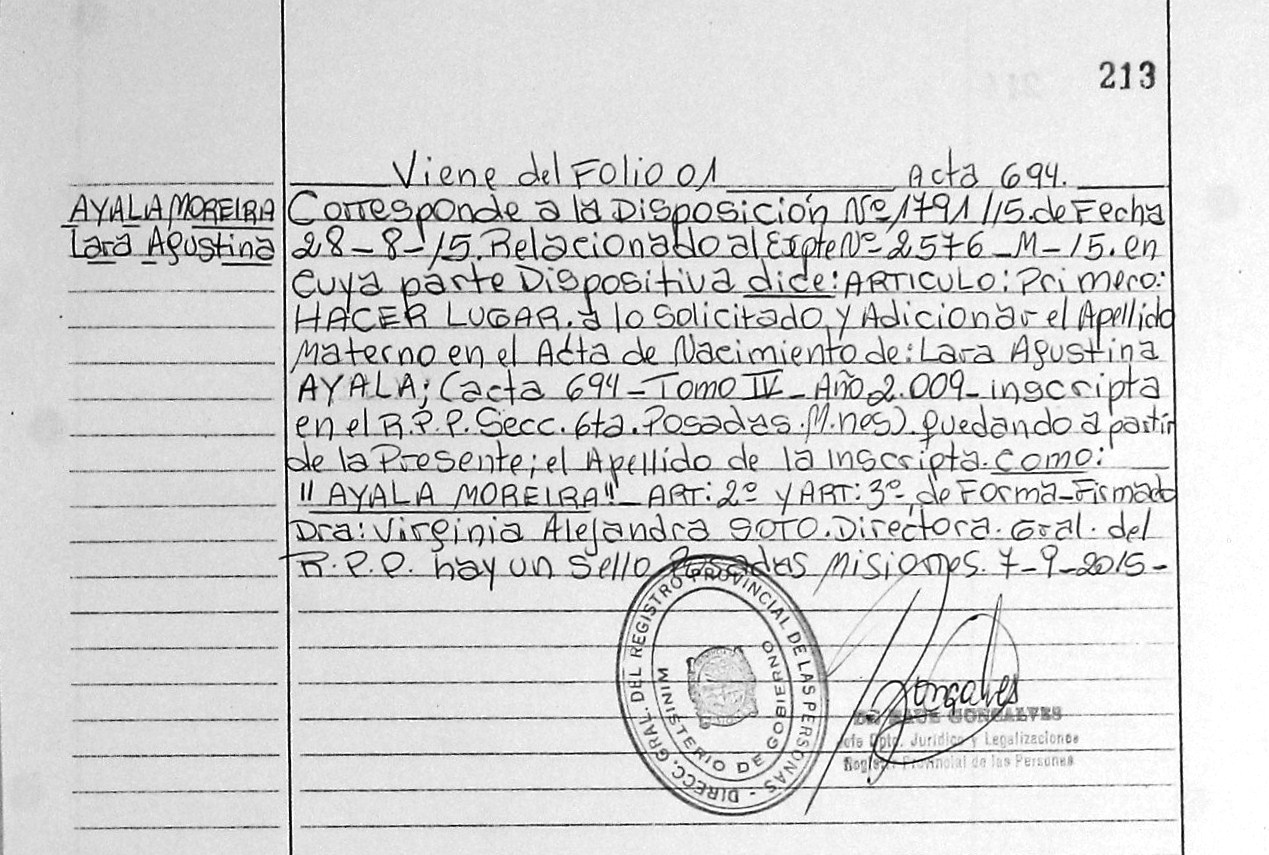 213
Viene del Folio 01 Acta 694.
AYALA MOREIRA
Lara Agustina
Corresponde a la Disposición Nº 1791/15. de Fecha
28-8-15. Relacionado al Expte Nº 2576-M-15. en
cuya parte Dispositiva dice: ARTICULO: Primero:
HACER LUGAR. a lo Solicitado, y Adicionar el Apellido
Materno en el Acta de Nacimiento de: Lara Agustina
AYALA; (acta 694-Tomo IV-Año 2.009-inscripta
en el R.P.P. Secc. 6ta. Posadas. M.nes). quedando a partir
de la Presente; el Apellido de la inscripta. como:
"AYALA MOREIRA" ART: 2º y ART: 3º. de Forma-Firmado
Dra: Virginia Alejandra SOTO. Directora. Gral. del
R.P.P. hay un Sello Posadas Misiones. 7-9-2015-
DIRECC. GRAL. DEL REGISTRO PROVINCIAL DE LAS PERSONAS -
MINISTERIO DE GOBIERNO
Gonçalves
GONCALVES
Jefe Dpto. Jurídico y Legalizaciones
Registro Provincial de las Personas